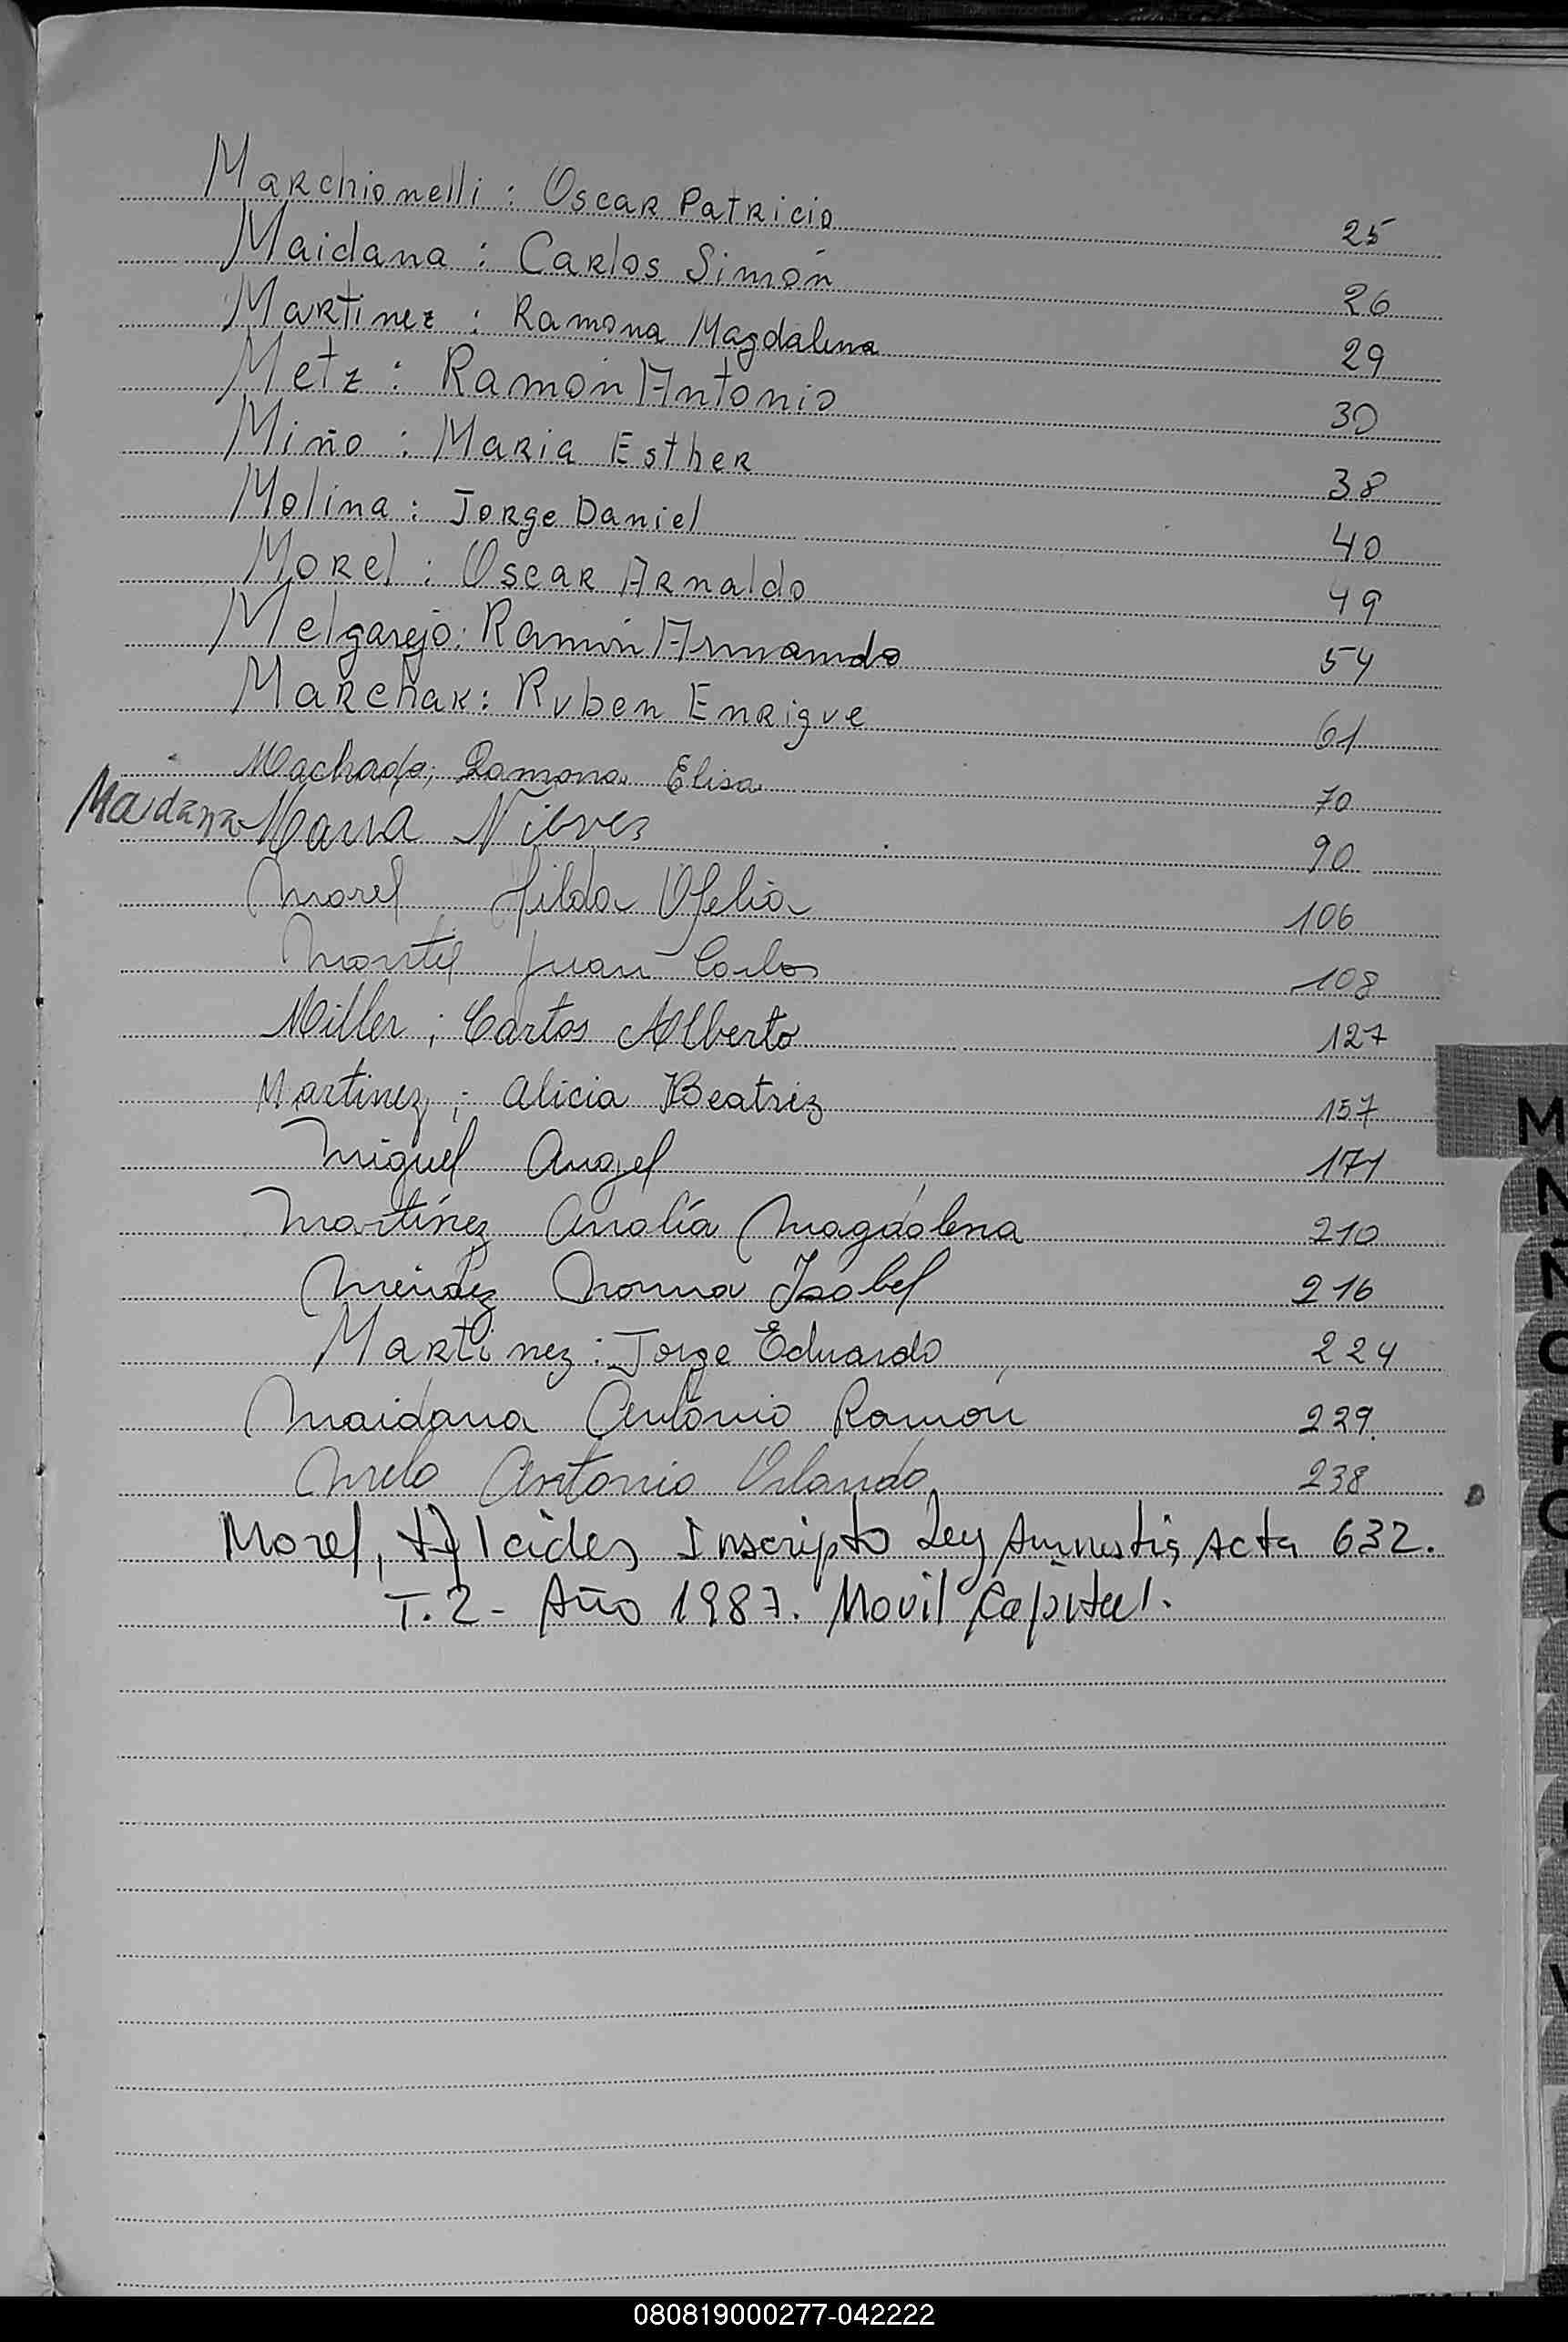 Marchionelli : Oscar Patricio 25
Maidana : Carlos Simón 26
Martinez : Ramona Magdalena 29
Metz : Ramón Antonio 30
Miño : Maria Esther 38
Molina : Jorge Daniel 40
Morel : Oscar Arnaldo 49
Melgarejo : Ramón Armando 54
Marchak : Ruben Enrique 61
Machado; Ramona Elisa 70
Maidana Maria Nieves 90
Morel Hilda Ofelia 106
Montiel Juan Carlos 108
Miller ; Carlos Alberto 127
Martinez ; Alicia Beatriz 157
Miguel Angel 171
Martínez Analía Magdalena 210
Mendez Norma Isabel 216
Martinez : Jorge Eduardo 224
Maidana Antonio Ramón 229.
Melo Antonio Orlando 238
Morel, Alcides Inscripto Ley Amnistia Acta 632.
T. 2 - Año 1987. Movil Capital.
M
N
Ñ
O
P
Q
V
080819000277-042222